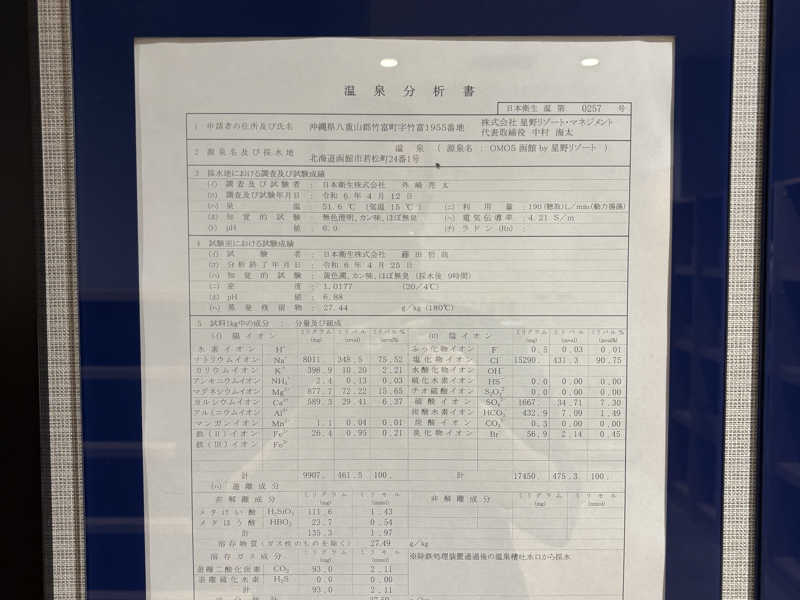 温泉分析書
日本衛生 温 第 0257 号
1 申請者の住所及び氏名 沖縄県八重山郡竹富町字竹富1955番地 株式会社 星野リゾート・マネジメント
代表取締役 中村 海太
2 源泉名及び採水地 温泉 ( 源泉名 : OMO5 函館 by 星野リゾート )
北海道函館市若松町24番1号
3 採水地における調査及び試験成績
(イ) 調査及び試験者 : 日本衛生株式会社
(ロ) 調査及び試験年月日 : 令和 6 年 4 月 12 日
(ハ) 泉温 : 51.6 ℃ (気温 15 ℃) (ニ) 利用量 : 190 (聴取)L/min(動力揚湯)
(ホ) 知覚的試験 : 無色澄明、カン味、ほぼ無臭 (ヘ) 電気伝導率 : 4.21 S/m
(ト) pH値 : 6.9 (チ) ラドン (Rn) :
4 試験室における試験成績
(イ) 試験者 : 日本衛生株式会社 藤田
(ロ) 分析終了年月日 : 令和 6 年 4 月 25 日
(ハ) 知覚的試験 : 黄色濁、カン味、ほぼ無臭 (採水後 9時間)
(ニ) 密度 : 1.0177 (20/4℃)
(ホ) pH値 : 6.88
(ヘ) 蒸発残留物 : 27.44 g/kg (180℃)
5 試料1kg中の成分 : 分量及び組成
(イ) 陽イオン ミリグラム(mg) ミリバル(mval) ミリバル%(mval%) (ロ) 陰イオン ミリグラム(mg) ミリバル(mval) ミリバル%(mval%)
水素イオン H⁺ ふっ化物イオン F⁻ 0.5 0.03 0.01
ナトリウムイオン Na⁺ 8011. 348.5 75.52 塩化物イオン Cl⁻ 15290. 431.3 90.75
カリウムイオン K⁺ 398.9 10.20 2.21 水酸化物イオン OH⁻
アンモニウムイオン NH₄⁺ 2.4 0.13 0.03 硫化水素イオン HS⁻ 0.0 0.00 0.00
マグネシウムイオン Mg²⁺ 877.7 72.22 15.65 チオ硫酸イオン S₂O₃²⁻ 0.0 0.00 0.00
カルシウムイオン Ca²⁺ 589.3 29.41 6.37 硫酸イオン SO₄²⁻ 1667. 34.71 7.30
アルミニウムイオン Al³⁺ 炭酸水素イオン HCO₃⁻ 432.9 7.09 1.49
マンガンイオン Mn²⁺ 1.1 0.04 0.01 炭酸イオン CO₃²⁻ 0.3 0.00 0.00
鉄(II)イオン Fe²⁺ 26.4 0.95 0.21 臭化物イオン Br⁻ 56.9 2.14 0.45
鉄(III)イオン Fe³⁺
計 9907. 461.5 100. 計 17450. 475.3 100.
(ハ) 遊離成分
非解離成分 ミリグラム(mg) ミリモル(mmol) 非解離成分 ミリグラム(mg) ミリモル(mmol)
メタけい酸 H₂SiO₃ 111.6 1.43
メタほう酸 HBO₂ 23.7 0.54
計 135.3 1.97
溶存物質(ガス性のものを除く) 27.49 g/kg
溶存ガス成分 ミリグラム(mg) ミリモル(mmol) ※除鉄処理装置通過後の温泉槽吐水口から採水
遊離二酸化炭素 CO₂ 93.0 2.11
遊離硫化水素 H₂S 0.0 0.00
計 93.0 2.11